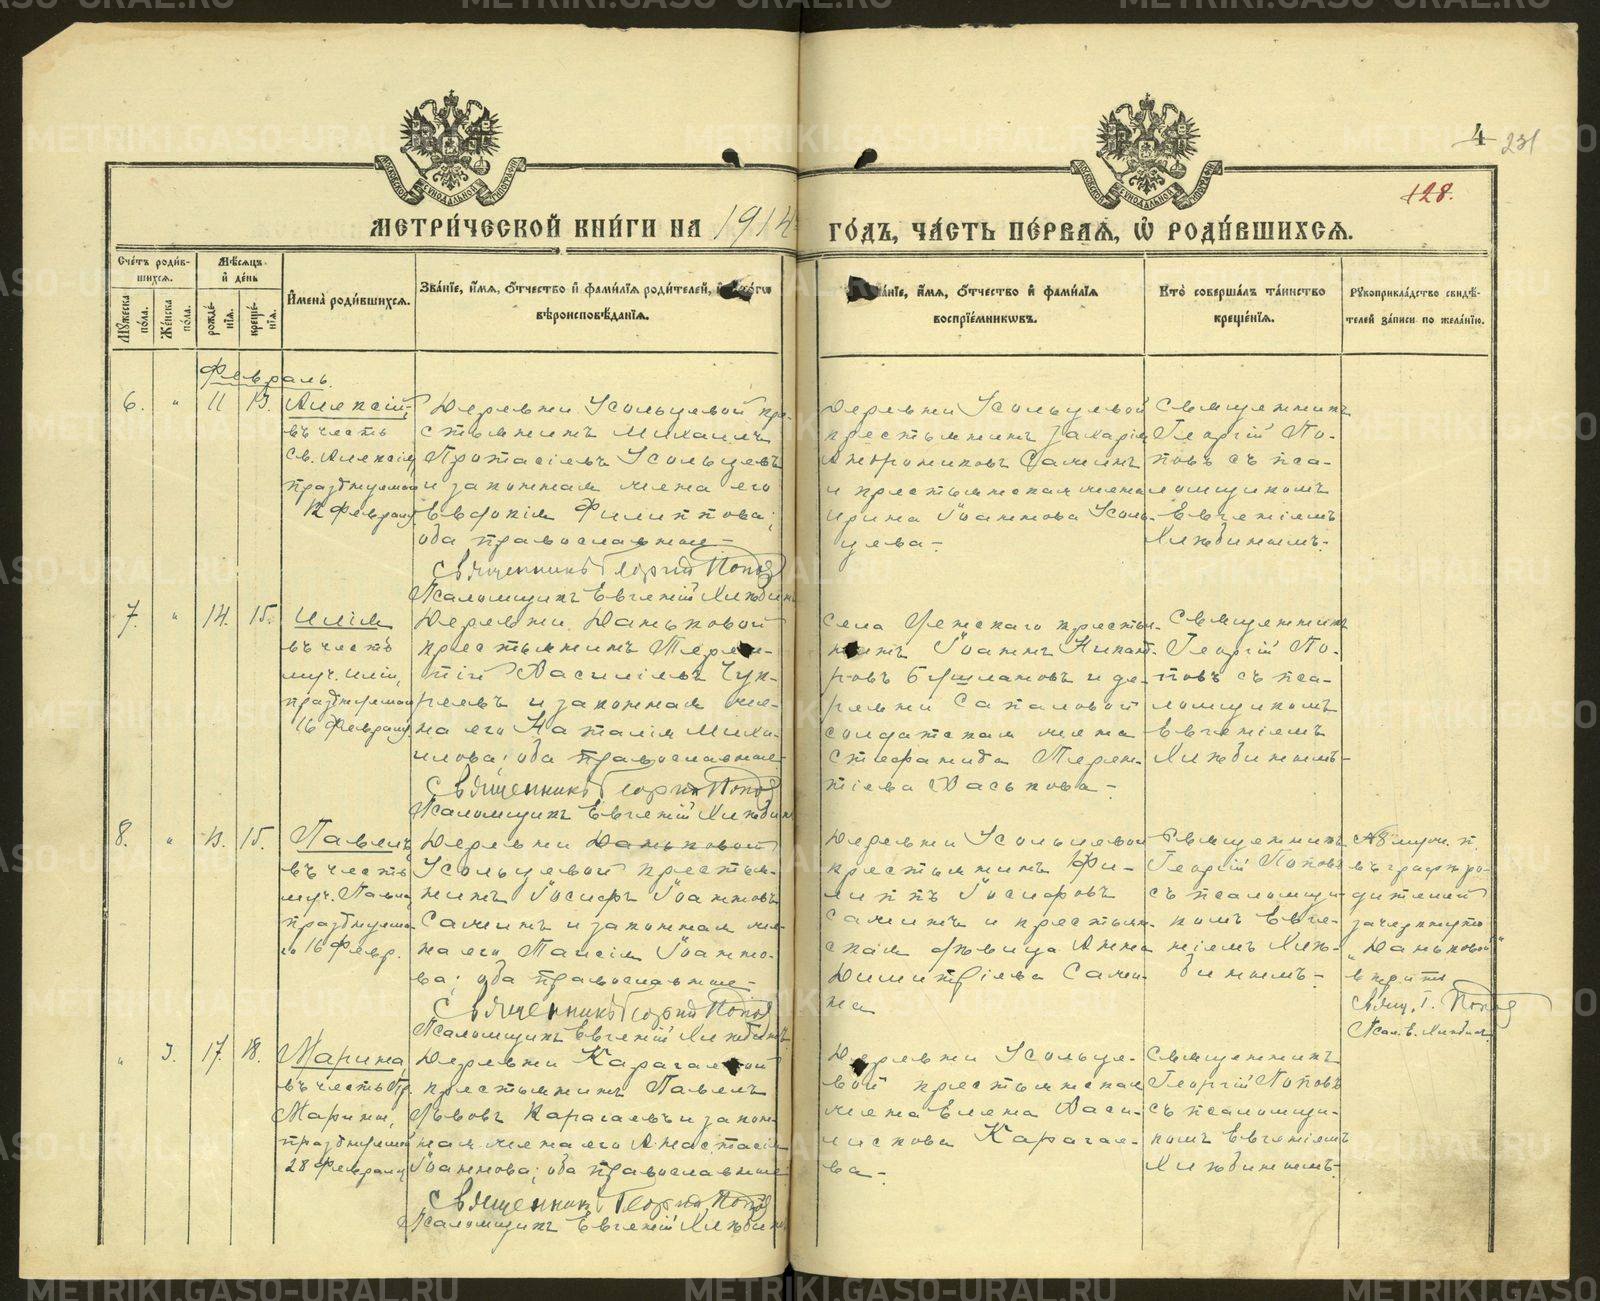 METRIKI.GASO-URAL.RU
4 231
128.
МЕТРИ́ЧЕСКОЙ КНИ́ГИ НА 1914 ГО́ДЪ, ЧА́СТЬ ПЕ́РВАЯ, Ѡ РОДИ́ВШИХСЯ.
Сче́тъ роди́вшихся.
Му́жеска по́ла.
Же́нска по́ла.
Мѣ́сяцъ и́ де́нь
рожде́нїя.
креще́нїя.
И́мена̀ роди́вшихся.
Зва́нїе, и́мя, о́тчество и́ фами́лїя роди́телей,
вѣроисповѣ́данїя.
и́мя, о́тчество и́ фами́лїя
воспрїе́мниковъ.
Кто̀ соверша́лъ та́инство
креще́нїя.
Рукоприкла́дство свидѣ́-
телей за́писи по жела́нїю.
Февраль.
6. " 11 13. Алексій,
въ честь
св. Алексія,
празднуемаго
12 Февраля
Деревни Усольцевой кре-
стьянинъ Михаилъ
Протасіевъ Усольцевъ
и законная жена его
Евдокія Филиппова;
оба православные-
Священникъ Георгій Попов
Псаломщикъ Евгеній Хлѣбинъ
Деревни Усольцевой
крестьянинъ Захарія
Андрониковъ Сажинъ
и крестьянская жена
Ирина Іоаннова Усоль-
цева-
Священникъ
Георгій По-
повъ съ пса-
ломщикомъ
Евгеніемъ
Хлѣбинымъ.
7. " 14. 15. Илія
въ честь
муч. Иліи,
празднуемаго
16 Февраля
Деревни Даньковой
крестьянинъ Терен-
тій Василіевъ Чук-
реевъ и законная же-
на его Наталія Миха-
илова; оба православные
Священникъ Георгій Попов
Псаломщикъ Евгеній Хлѣбинъ
крестья-
нинъ Іоаннъ Никан-
ровъ и де-
ревни Сапаловой
солдатская жена
Стефанида Терен-
тіева Васькова-
Священникъ
Георгій По-
повъ съ пса-
ломщикомъ
Евгеніемъ
Хлѣбинымъ-
8. " 13. 15. Павелъ,
въ честь
муч. Павла,
празднуема-
го 16 Февр.
Деревни Даньковой
Усольцевой крестья-
нинъ Іосифъ Іоанновъ
Сажинъ и законная же-
на его Таисія Іоанно-
ва; оба православные-
Священникъ Георгій Попов
Псаломщикъ Евгеній Хлѣбинъ
Деревни Усольцевой
крестьянинъ Фи-
липпъ Іосифовъ
Сажинъ и крестьян-
ская дѣвица Анна
Димитріева Сажи-
на
Священникъ
Георгій Поповъ
съ псаломщи-
комъ Евге-
ніемъ Хлѣ-
бинымъ-
въ графѣ ро-
дителей
зачеркнуто
"Даньковой"
Свящ. Г. Попов
Псал. Е. Хлѣбинъ
" 3. 17. 18. Марина,
въ честь Пр.
Марины,
празднуемой
28 Февраля
Деревни Карагаевой
крестьянинъ Павелъ
Львовъ Карагаевъ и закон-
ная жена его Анастасія
Іоаннова; оба православные
Священникъ Георгій Попов
Псаломщикъ Евгеній Хлѣбинъ
Деревни Усольце-
вой крестьянская
жена Елена Васи-
лискова Карагае-
ва-
Священникъ
Георгій Поповъ
съ псаломщи-
комъ Евгеніемъ
Хлѣбинымъ-